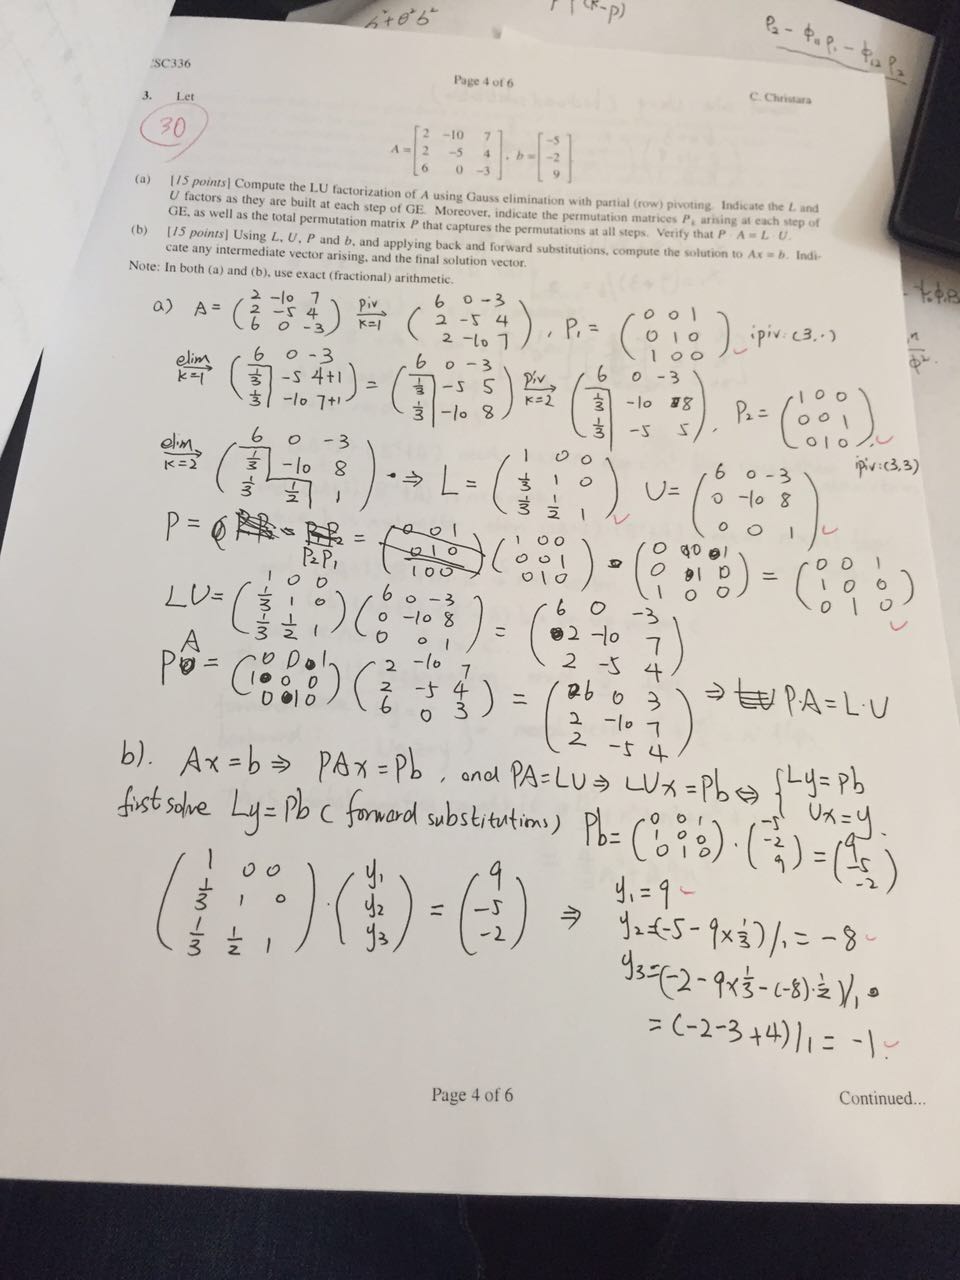 h²+θ²b²
(k-p)
ρ₂ - φ₁₁ρ₁ - φ₁₂ρ₂
SC336
Page 4 of 6
C. Christara
3. Let
30
A = [2 -10 7; 2 -5 4; 6 0 -3], b = [-5; -2; 9]
(a) [15 points] Compute the LU factorization of A using Gauss elimination with partial (row) pivoting. Indicate the L and
U factors as they are built at each step of GE. Moreover, indicate the permutation matrices Pₖ arising at each step of
GE, as well as the total permutation matrix P that captures the permutations at all steps. Verify that P · A = L · U.
(b) [15 points] Using L, U, P and b, and applying back and forward substitutions, compute the solution to Ax = b. Indi-
cate any intermediate vector arising, and the final solution vector.
Note: In both (a) and (b), use exact (fractional) arithmetic.
a) A = (2 -10 7; 2 -5 4; 6 0 -3) piv k=1 → (6 0 -3; 2 -5 4; 2 -10 7), P₁ = (0 0 1; 0 1 0; 1 0 0) ipiv: (3, ·)
elim k=1 → (6 0 -3; 1/3 -5 4+1; 1/3 -10 7+1) = (6 0 -3; 1/3 -5 5; 1/3 -10 8) piv k=2 → (6 0 -3; 1/3 -10 8; 1/3 -5 5), P₂ = (1 0 0; 0 0 1; 0 1 0)
ipiv: (3,3)
elim k=2 → (6 0 -3; 1/3 -10 8; 1/3 1/2 1) ⇒ L = (1 0 0; 1/3 1 0; 1/3 1/2 1) U = (6 0 -3; 0 -10 8; 0 0 1)
P = P₂P₁ = (0 0 1; 0 1 0; 1 0 0) (1 0 0; 0 0 1; 0 1 0) (0 0 1; 0 1 0; 1 0 0) = (0 0 1; 1 0 0; 0 1 0)
LU = (1 0 0; 1/3 1 0; 1/3 1/2 1) (6 0 -3; 0 -10 8; 0 0 1) = (6 0 -3; 2 -10 7; 2 -5 4)
PA = (0 0 1; 1 0 0; 0 1 0) (2 -10 7; 2 -5 4; 6 0 3) = (6 0 3; 2 -10 7; 2 -5 4) ⇒ P·A = L·U
b). Ax = b ⇒ PAx = Pb, and PA = LU ⇒ LUx = Pb ⇔ { Ly = Pb
Ux = y.
first solve Ly = Pb ( forward substitutions) Pb = (0 0 1; 1 0 0; 0 1 0) · (-5; -2; 9) = (9; -5; -2)
(1 0 0; 1/3 1 0; 1/3 1/2 1) · (y₁; y₂; y₃) = (9; -5; -2) ⇒ y₁ = 9
y₂ = (-5 - 9×1/3)/1 = -8
y₃ = (-2 - 9×1/3 - (-8)·1/2)/1
= (-2-3+4)/1 = -1
Page 4 of 6
Continued...